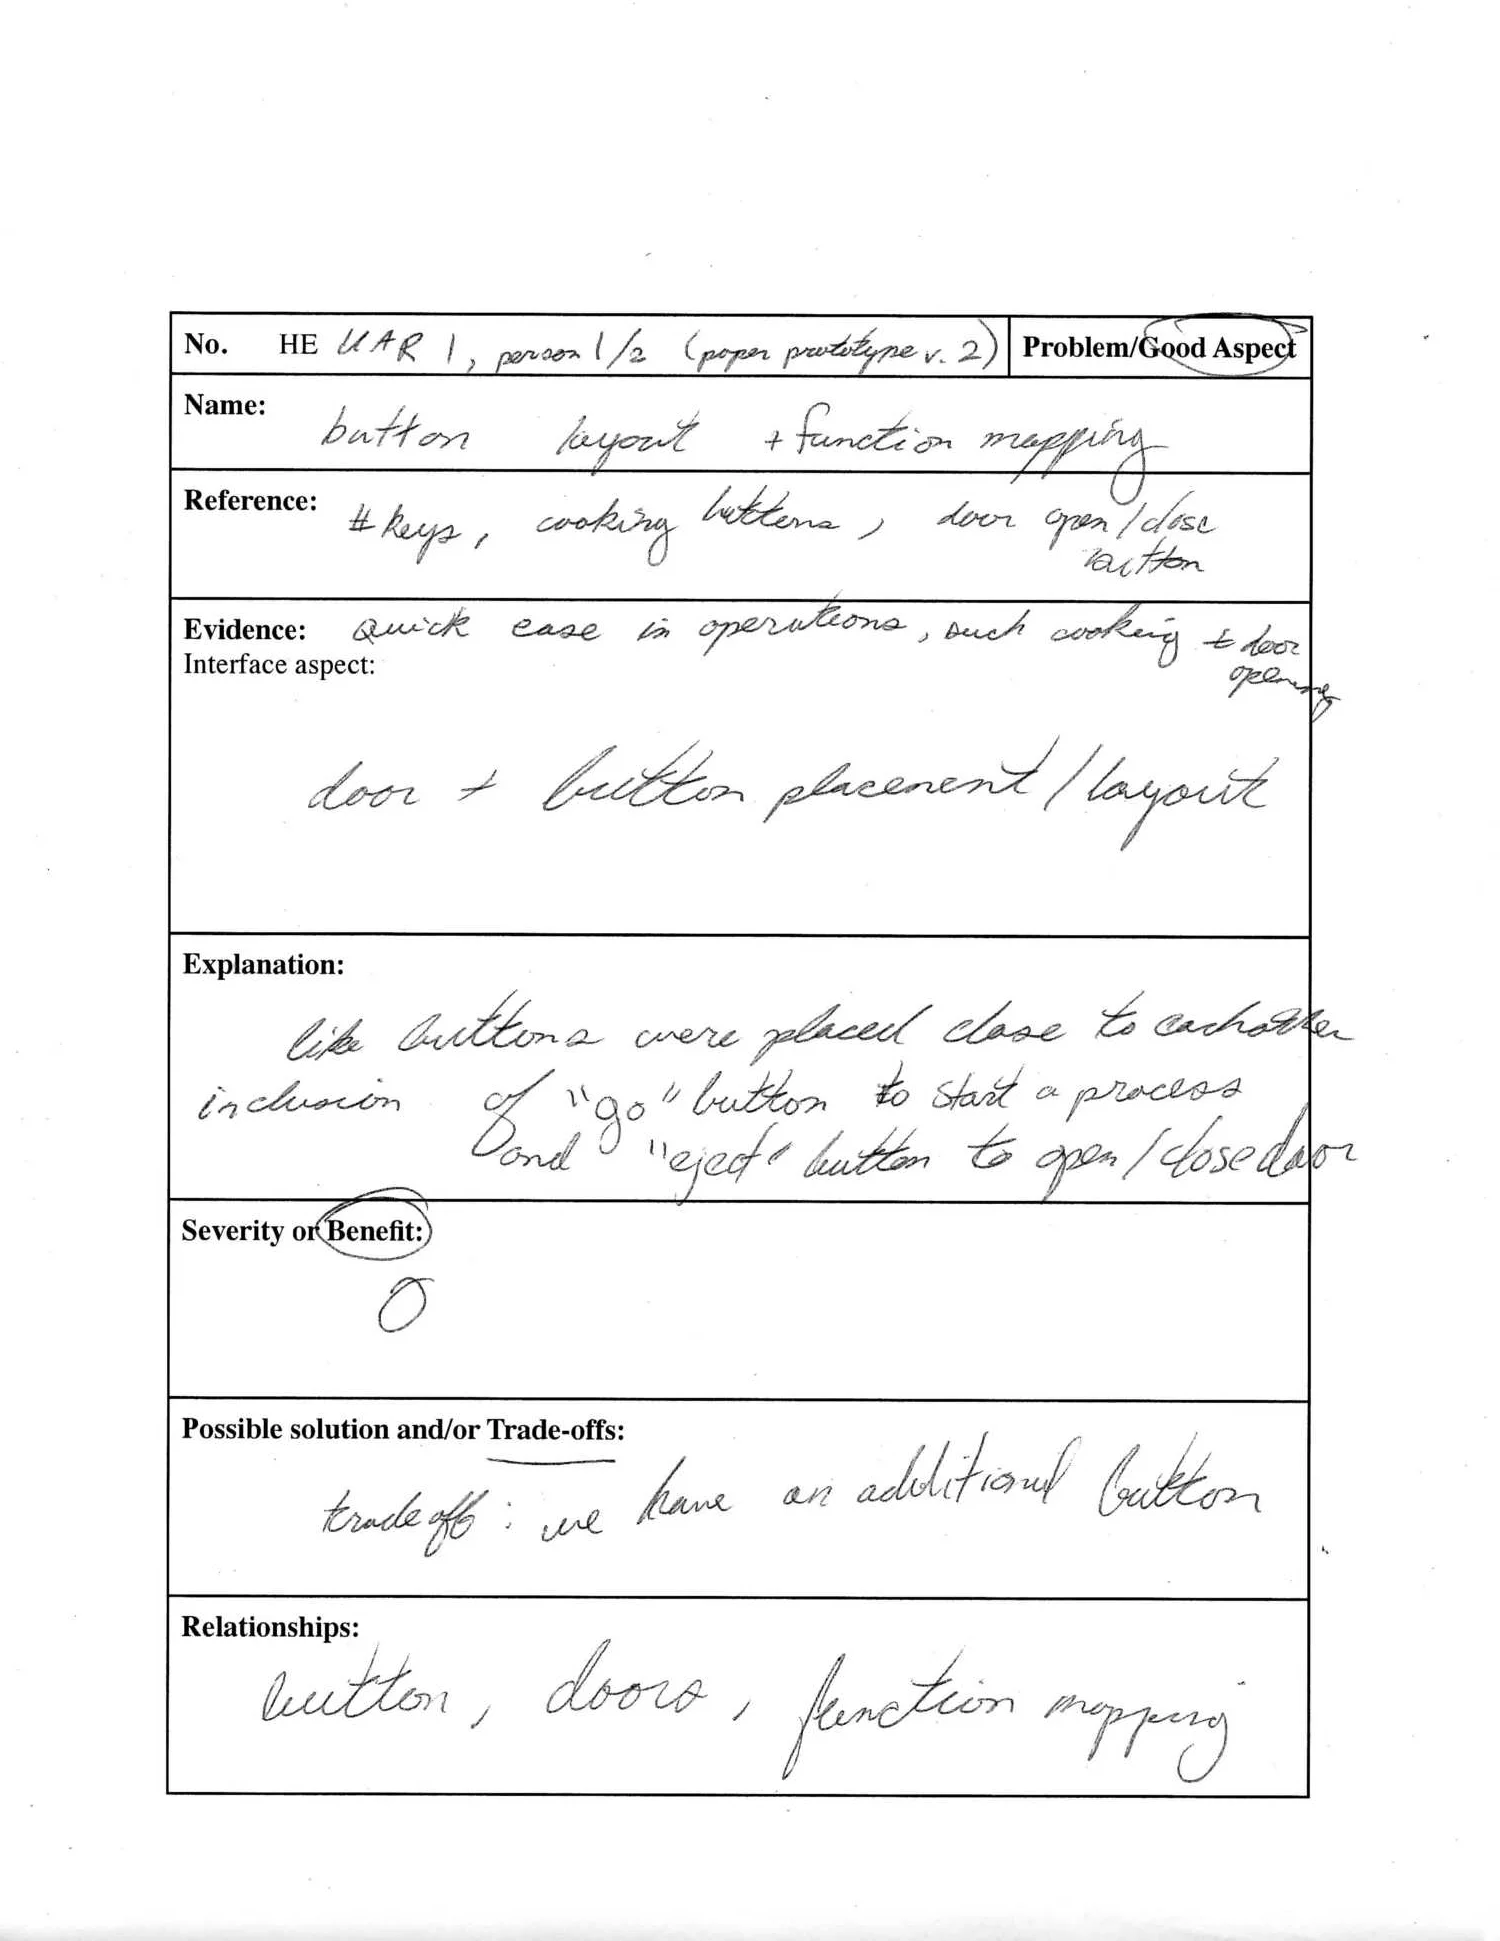 No. HE UAR 1, person 1/2 (paper prototype v. 2) Problem/Good Aspect
Name:
button layout + function mapping
Reference:
# keys, cooking buttons, door open/close
button
Evidence: Quick ease in operations, such cooking + door
opening
Interface aspect:
door + button placement/layout
Explanation:
like buttons were placed close to eachother
inclusion of "go" button to start a process
and "eject" button to open/close door
Severity or Benefit:
0
Possible solution and/or Trade-offs:
tradeoff: we have an additional button
Relationships:
button, doors, function mapping